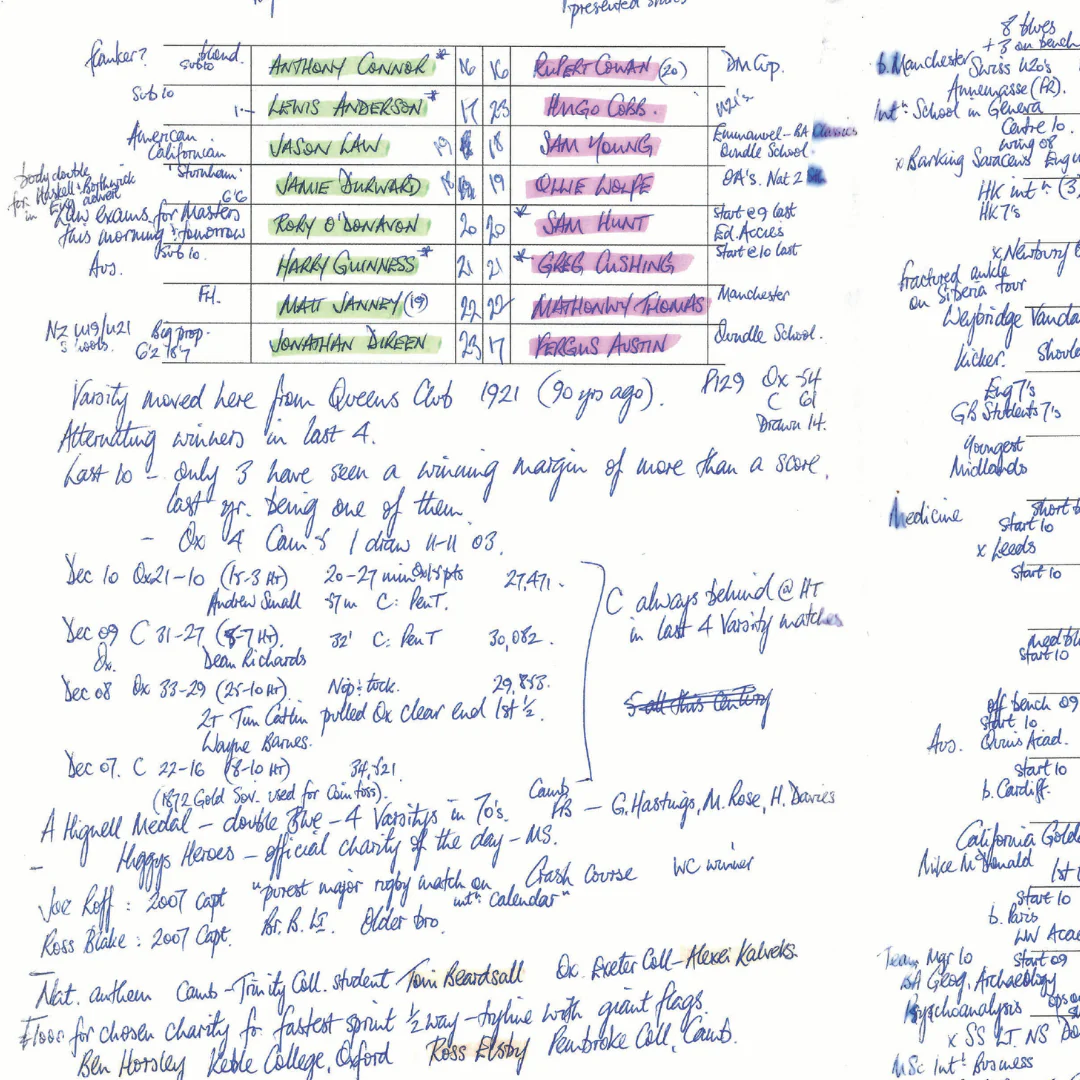 presented
flanker? blond sub 10 ANTHONY CONNOR* 16 16 RUPERT COWAN (20) DM Cup.
Sub 10 LEWIS ANDERSON* 17 23 HUGO COBB. U21's
American Californian JASON LAW 19 18 SAM YOUNG Emmanuel - BA Classics Oundle School.
body double for Haskell & Borthwick in Eng advert 6'6 JAMIE DURWARD 18 19 OLLIE WOLFE OA's. Nat 2
Law exams for Masters this morning & tomorrow RORY O'DONAVON 20 20 * SAM HUNT Start @ 9 last Ed. Accies
Aus. Sub 10. HARRY GUINNESS* 21 21 * GREG CUSHING Start @ 10 last
FH. MATT JANNEY (19) 22 22 MATHONWY THOMAS Manchester
NZ U19/U21 Big prop. 6'2 18'7 JONATHAN DIREEN 23 17 FERGUS AUSTIN Oundle School.
Varsity moved here from Queens Club 1921 (90 yrs ago). P129 Ox - 54
C 61
Alternating winners in last 4. Drawn 14.
Last 10 - only 3 have seen a winning margin of more than a score,
last yr. being one of them
- Ox 4 Cam 5 1 draw 11-11 03.
Dec 10 Ox 21-10 (15-3 HT) 20-27 min Ox 18 pts 27,471.
Andrew Small 57m C: Pen T.
Dec 09 C 31-27 (8-7 HT). 32' C: Pen T 30,082.
Ox. Dean Richards
Dec 08 Ox 33-29 (25-10 HT). Nip & tuck. 29,853.
2T Tim Catlin pulled Ox clear end 1st ½.
Wayne Barnes.
Dec 07. C 22-16 (8-10 HT) 34,521
(1872 Gold Sov. used for Coin toss).
C always behind @ HT
in last 4 Varsity matches
5 all this Century
Camb FBs - G. Hastings, M. Rose, H. Davies
A Hignell Medal - double Blue - 4 Varsitys in 70's.
- Higgys Heroes - official charity of the day - MS.
Joe Roff : 2007 Capt "purest major rugby match on intn calendar" Crash course WC winner
Ross Blake : 2007 Capt. Br. B. Older bro.
Nat. anthem Camb - Trinity Coll. student Tom Beardsall Ox. Exeter Coll - Alexei Kalveks.
£1000 for chosen charity for fastest sprint ½ way - tryline with giant flags.
Ben Horsley Keble College, Oxford Ross Elsby Pembroke Coll, Camb.
8 blues
+ 3 on bench
b. Manchester Swiss U20's
Annemasse (FR).
Intn School in Geneva
Centre 10.
wing 08
x Barking Saracens Eng U
HK intn (3,
HK 7's
x Newbury
fractured ankle
on Siberia tour
Weybridge Vanda
kicker. Should
Eng 7's
GB Students 7's
youngest
Midlands
Medicine short
start 10
x Leeds
start 10
start 10
off bench 09
start 10
Aus. Quins Acad.
start 10
b. Cardiff.
California Gold
Mike McDonald
1st
start 10
b. Paris
LW Aca
Team Mgr 10 start 09
BA Geog, Archaeology
Psychoanalysis
x SS LT. NS
MSc Intn Business